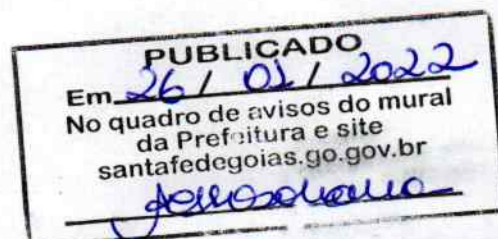 PUBLICADO
Em 26 / 01 / 2022
No quadro de avisos do mural
da Prefeitura e site
santafedegoias.go.gov.br